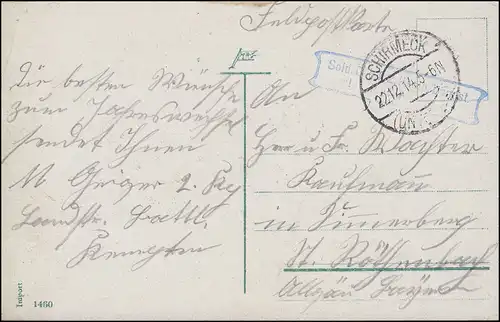 Feldpostkarte
SCHIRMECK
22.12.14.5-6N
Sold.
Die besten Wünsche
zum Jahreswechsel
sendet Ihnen
M Geiger 2. Kp
Landst. Batl.
Kempten
An
Herrn u. Fr.
Kaufmann
in Simmerberg
St. Röthenbach
Allgäu Bayern
Import 1460